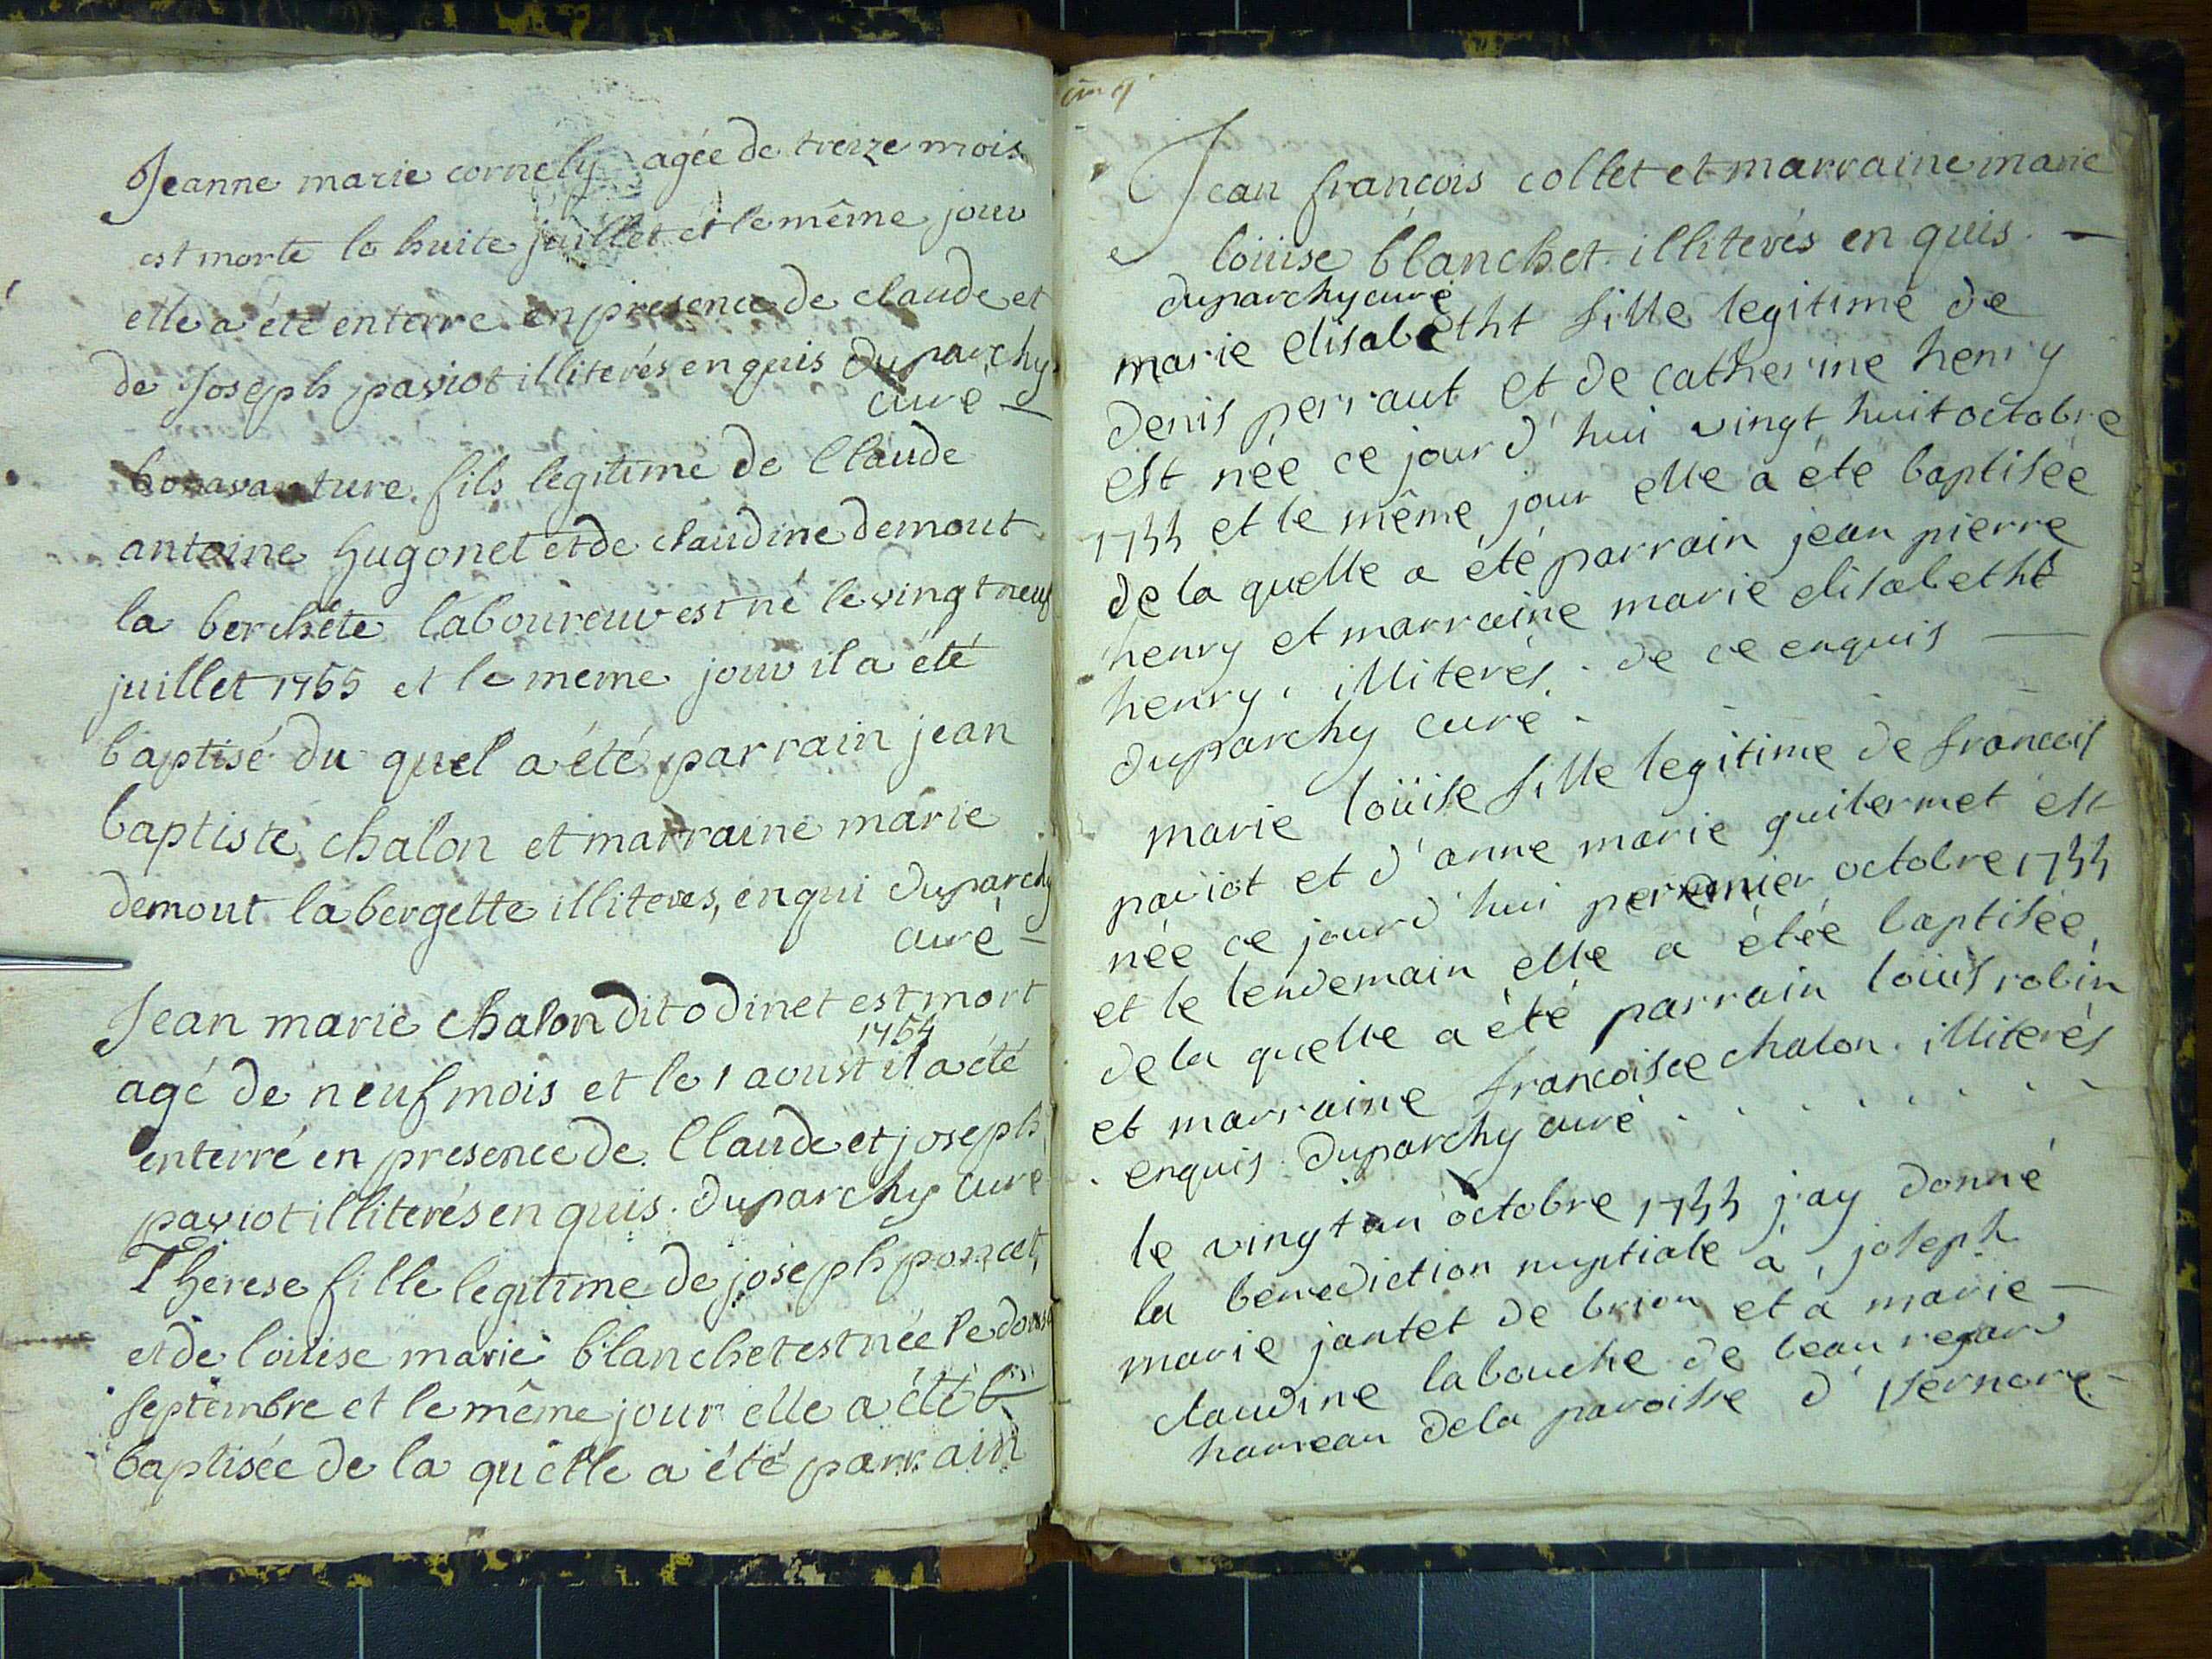 Jeanne marie cornely agée de treize mois
est morte le huite juillet et le même jour
elle a été enterre en presence de claude et
de Joseph paviot illiterés enquis duparchy
curé
bonavanture fils legitime de Claude
antoine hugonet et de claudine demout
la berchête laboureur est né le vingt neuf
juillet 1755 et le meme jour il a été
baptisé du quel a été parrain jean
baptiste chalon et marraine marie
demout la bergette illiteres, enqui duparchy
curé
Jean marie chalon dit odinet est mort
1754
agé de neuf mois et le 1 aoust il a été
enterré en presence de Claude et joseph
paviot illiterés enquis. duparchy curé
Therese fille legitime de joseph poncet,
et de loüise marie blanchet est née le douse
septembre et le même jour elle a été b
baptisée de la quelle a été parrain
cinq
Jean francois collet et marraine marie
loüise blanchet illiterés en quis
duparchy curé
marie elisabetht fille legitime de
denis perraut et de catherine henry
est née ce jourd'hui vingt huit octobre
1755 et le même jour elle a été baptisée
de la quelle a été parrain jean pierre
henry et marraine marie elisabetht
henry. illiterés. de ce enquis
duparchy curé
marie loüise fille legitime de francois
paviot et d'anne marie guilermet est
née ce jourd'hui peremier octobre 1755
et le lendemain elle a étée baptisée,
de la quelle a été parrain loüis robin
et marraine francoisce chalon. illiterés
enquis duparchy curé
le vingt un octobre 1755 j'ay donné
la benediction nuptiale à joseph
marie jantet de brion et à marie
claudine labouche de beau regard
hameau de la paroisse d'isernore